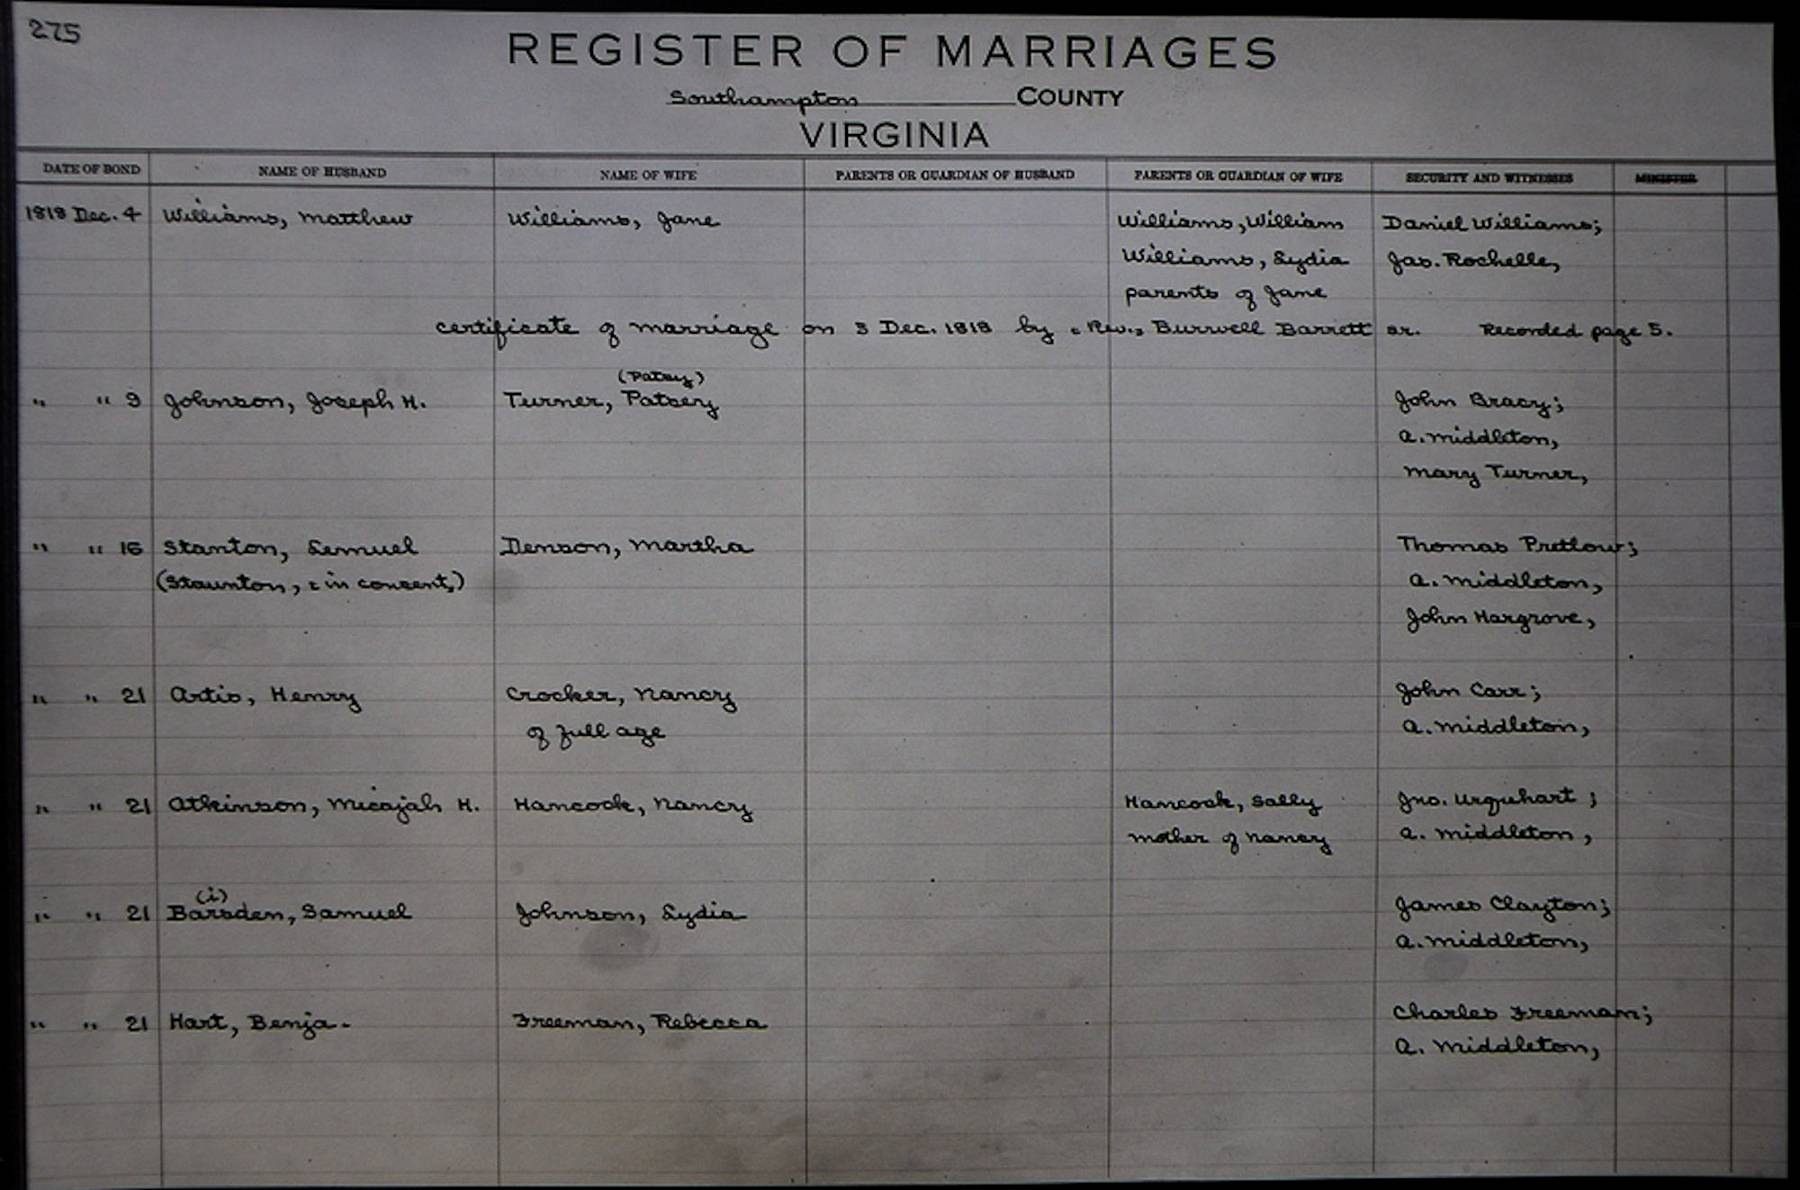 275
REGISTER OF MARRIAGES
Southampton COUNTY
VIRGINIA
DATE OF BOND NAME OF HUSBAND NAME OF WIFE PARENTS OR GUARDIAN OF HUSBAND PARENTS OR GUARDIAN OF WIFE SECURITY AND WITNESSES MINISTER
1818 Dec. 4 Williams, Matthew Williams, Jane Williams, William Daniel Williams;
Williams, Lydia Jas. Rochelle,
parents of Jane
certificate of marriage on 5 Dec. 1818 by (Rev.) Burwell Barrett sr. Recorded page 5.
(Patsy)
" " 9 Johnson, Joseph H. Turner, Patsey John Bracy;
A. Middleton,
Mary Turner,
" " 16 Stanton, Lemuel Denson, Martha Thomas Pretlow;
(Staunton, in consent,) A. Middleton,
John Hargrove,
" " 21 Artis, Henry Crocker, Nancy John Carr;
of full age A. Middleton,
" " 21 Atkinson, Micajah H. Hancock, Nancy Hancock, Sally Jno. Urquhart;
mother of Nancy A. Middleton,
(i)
" " 21 Barsden, Samuel Johnson, Lydia James Clayton;
A. Middleton,
" " 21 Hart, Benja. Freeman, Rebecca Charles Freeman;
A. Middleton,